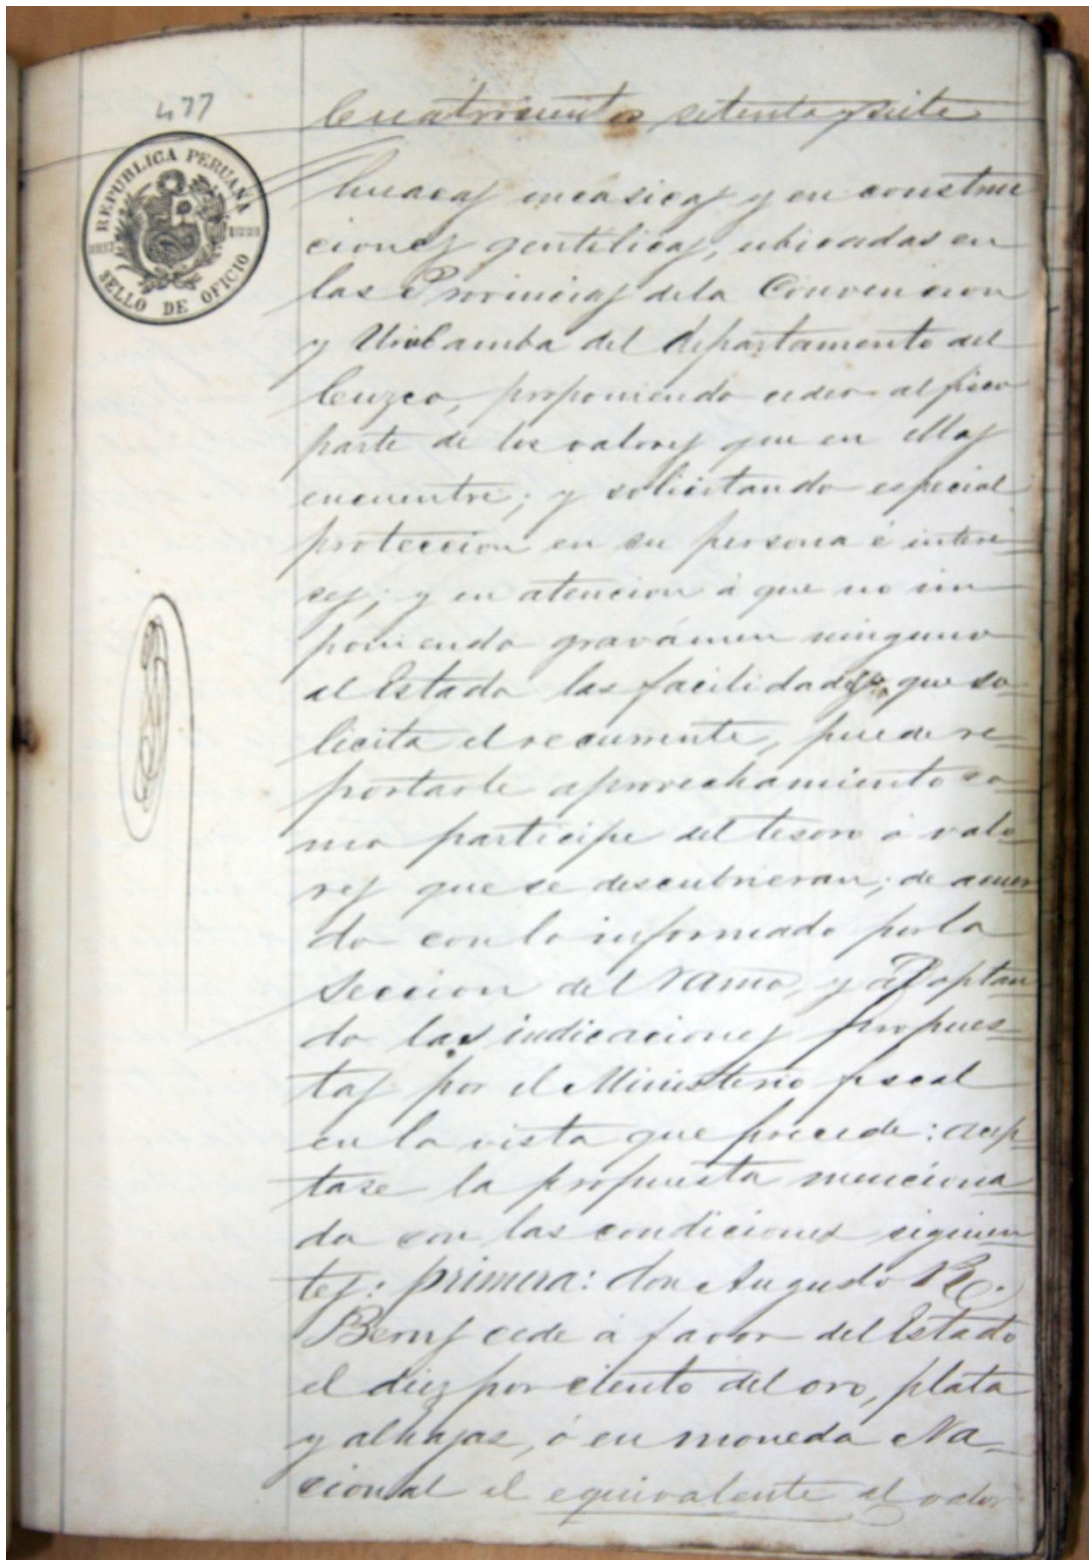 477
Cuatrocientos setenta y siete
REPUBLICA PERUANA
SELLO DE OFICIO
huacas incasicas y en construc
ciones gentilicas, ubicadas en
las Provincias dela Convencion
y Urubamba del departamento del
Cuzco, proponiendo ceder al fisco
parte de los valores que en ellas
encuentre; y solicitando especial
proteccion en su persona é intere-
ses; y en atencion á que no im
poniendo gravámen ninguno
al Estado las facilidades que so-
licita el recurrente, puede re-
portarle aprovechamiento co-
mo participe del tesoro ó valo-
res que se descubrieran; de acuer
do con lo informado por la
Seccion del Ramo, y adoptan
do las indicaciones propues-
tas por el Ministerio fiscal
en la vista que precede: acep-
tase la propuesta menciona
da con las condiciones siguien
tes: primera: don Augusto R.
Berns cede á favor del Estado
el diez por ciento del oro, plata
y alhajas, ó en moneda Na-
cional el equivalente al valor